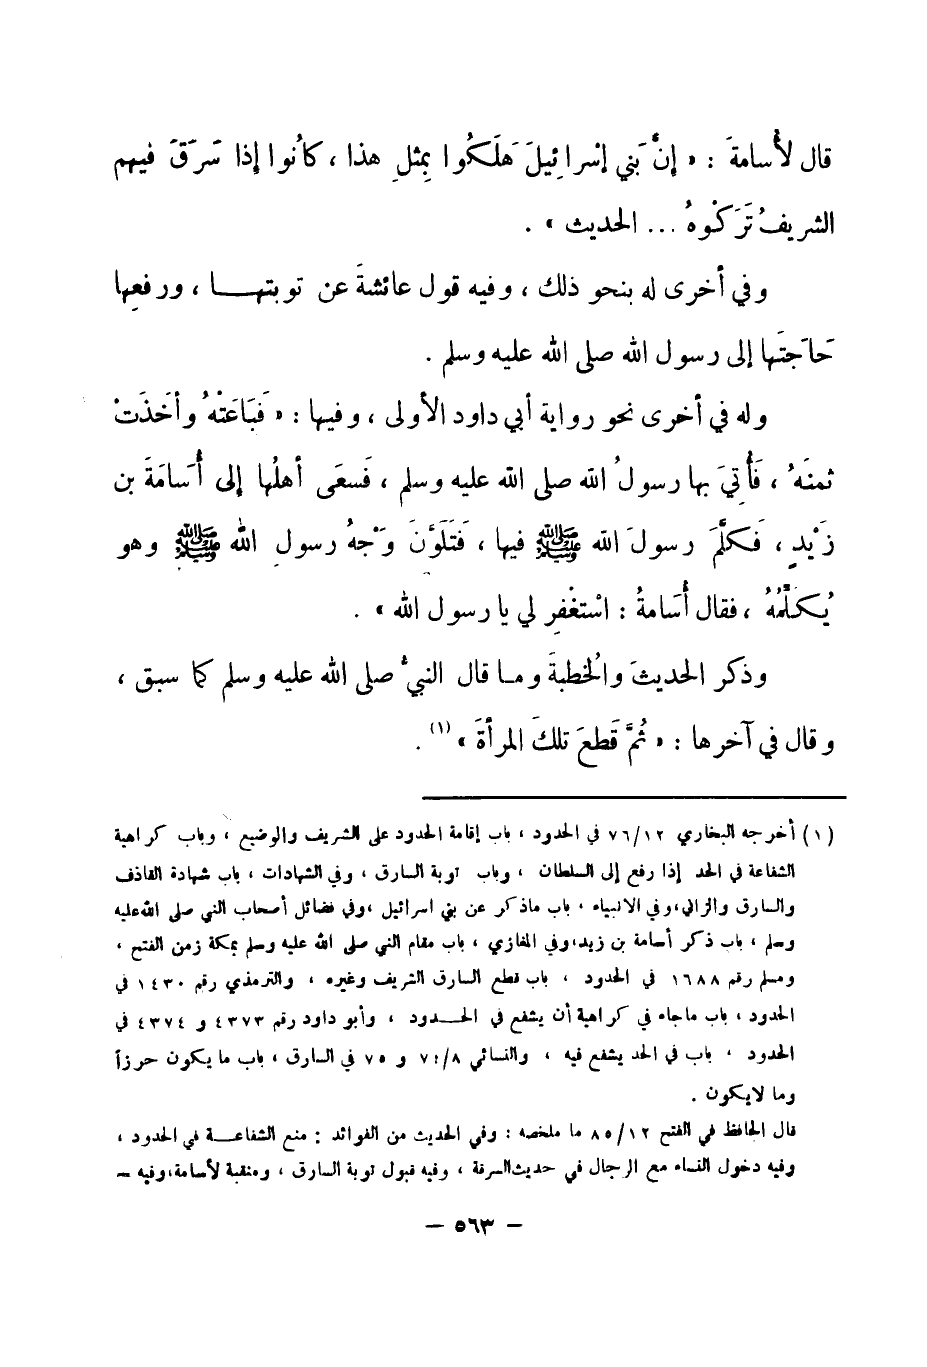 قال لأُسامةَ : « إنَّ بَني إسْرائِيلَ هَلَكُوا بِمثلِ هذا ، كانُوا إذا سَرَقَ فيهم
الشريفُ تَرَكُوْهُ ... الحديث » .
وفي أخرى له بنحو ذلك ، وفيه قول عائشةَ عن توبتهــا ، ورفعِها
حَاجَتَها إلى رسول الله صلى الله عليه وسلم .
وله في أخرى نحو رواية أبي داود الأولى ، وفيها : « فَبَاعَتْهُ وأخَذَتْ
ثمنَهُ ، فَأُتِيَ بها رسولُ الله صلى الله عليه وسلم ، فَسعَى أهلُها إلى أُسَامَةَ بن
زَيْدٍ ، فَكلَّمَ رسولَ الله ﷺ فيها ، فَتَلَوَّنَ وَجْهُ رسولِ الله ﷺ وهو
يُكلِّمُهُ ، فقال أُسَامةُ : اسْتغْفِر لي يا رسول الله » .
وذكر الحديثَ والخُطبةَ وما قال النبيُّ صلى الله عليه وسلم كما سبق ،
وقال في آخرها : « ثُمَّ قَطعَ تلكَ المرأةَ » (١) .
(١) أخرجه البخاري ٧٦/١٢ في الحدود ، باب إقامة الحدود على الشريف والوضيع ، وباب كراهية
الشفاعة في الحد إذا رفع إلى السلطان ، وباب توبة السارق ، وفي الشهادات ، باب شهادة القاذف
والسارق والزاني ، وفي الانبياء ، باب ماذكر عن بني اسرائيل ، وفي فضائل أصحاب النبي صلى الله عليه
وسلم ، باب ذكر أسامة بن زيد ، وفي المغازي ، باب مقام النبي صلى الله عليه وسلم بمكة زمن الفتح ،
ومسلم رقم ١٦٨٨ في الحدود ، باب قطع السارق الشريف وغيره ، والترمذي رقم ١٤٣٠ في
الحدود ، باب ماجاء في كراهية أن يشفع في الحــدود ، وأبو داود رقم ٤٣٧٣ و ٤٣٧٤ في
الحدود ، باب في الحد يشفع فيه ، والنسائي ٧٤/٨ و ٧٥ في السارق ، باب ما يكون حرزاً
وما لايكون .
قال الحافظ في الفتح ٨٥/١٢ ما ملخصه : وفي الحديث من الفوائد : منع الشفاعــة في الحدود ،
وفيه دخول النساء مع الرجال في حديث السرقة ، وفيه قبول توبة السارق ، ومنقبة لأسامة ، وفيه –
– ٥٦٣ –